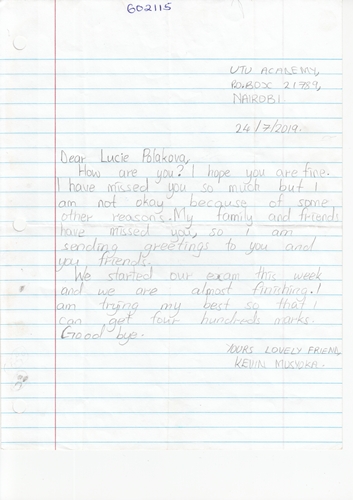 602115
UTU ACADEMY,
P.O.BOX 21789,
NAIROBI
24/7/2019.
Dear Lucie Polakova,
How are you? I hope you are fine.
I have missed you so much but I
am not okay because of some
other reasons. My family and friends
have missed you, so I am
sending greetings to you and
you friends.
We started our exam this week
and we are almost finishing. I
am trying my best so that I
can get four hundreds marks.
Good bye.
YOURS LOVELY FRIEND,
KEVIN MUSYOKA.